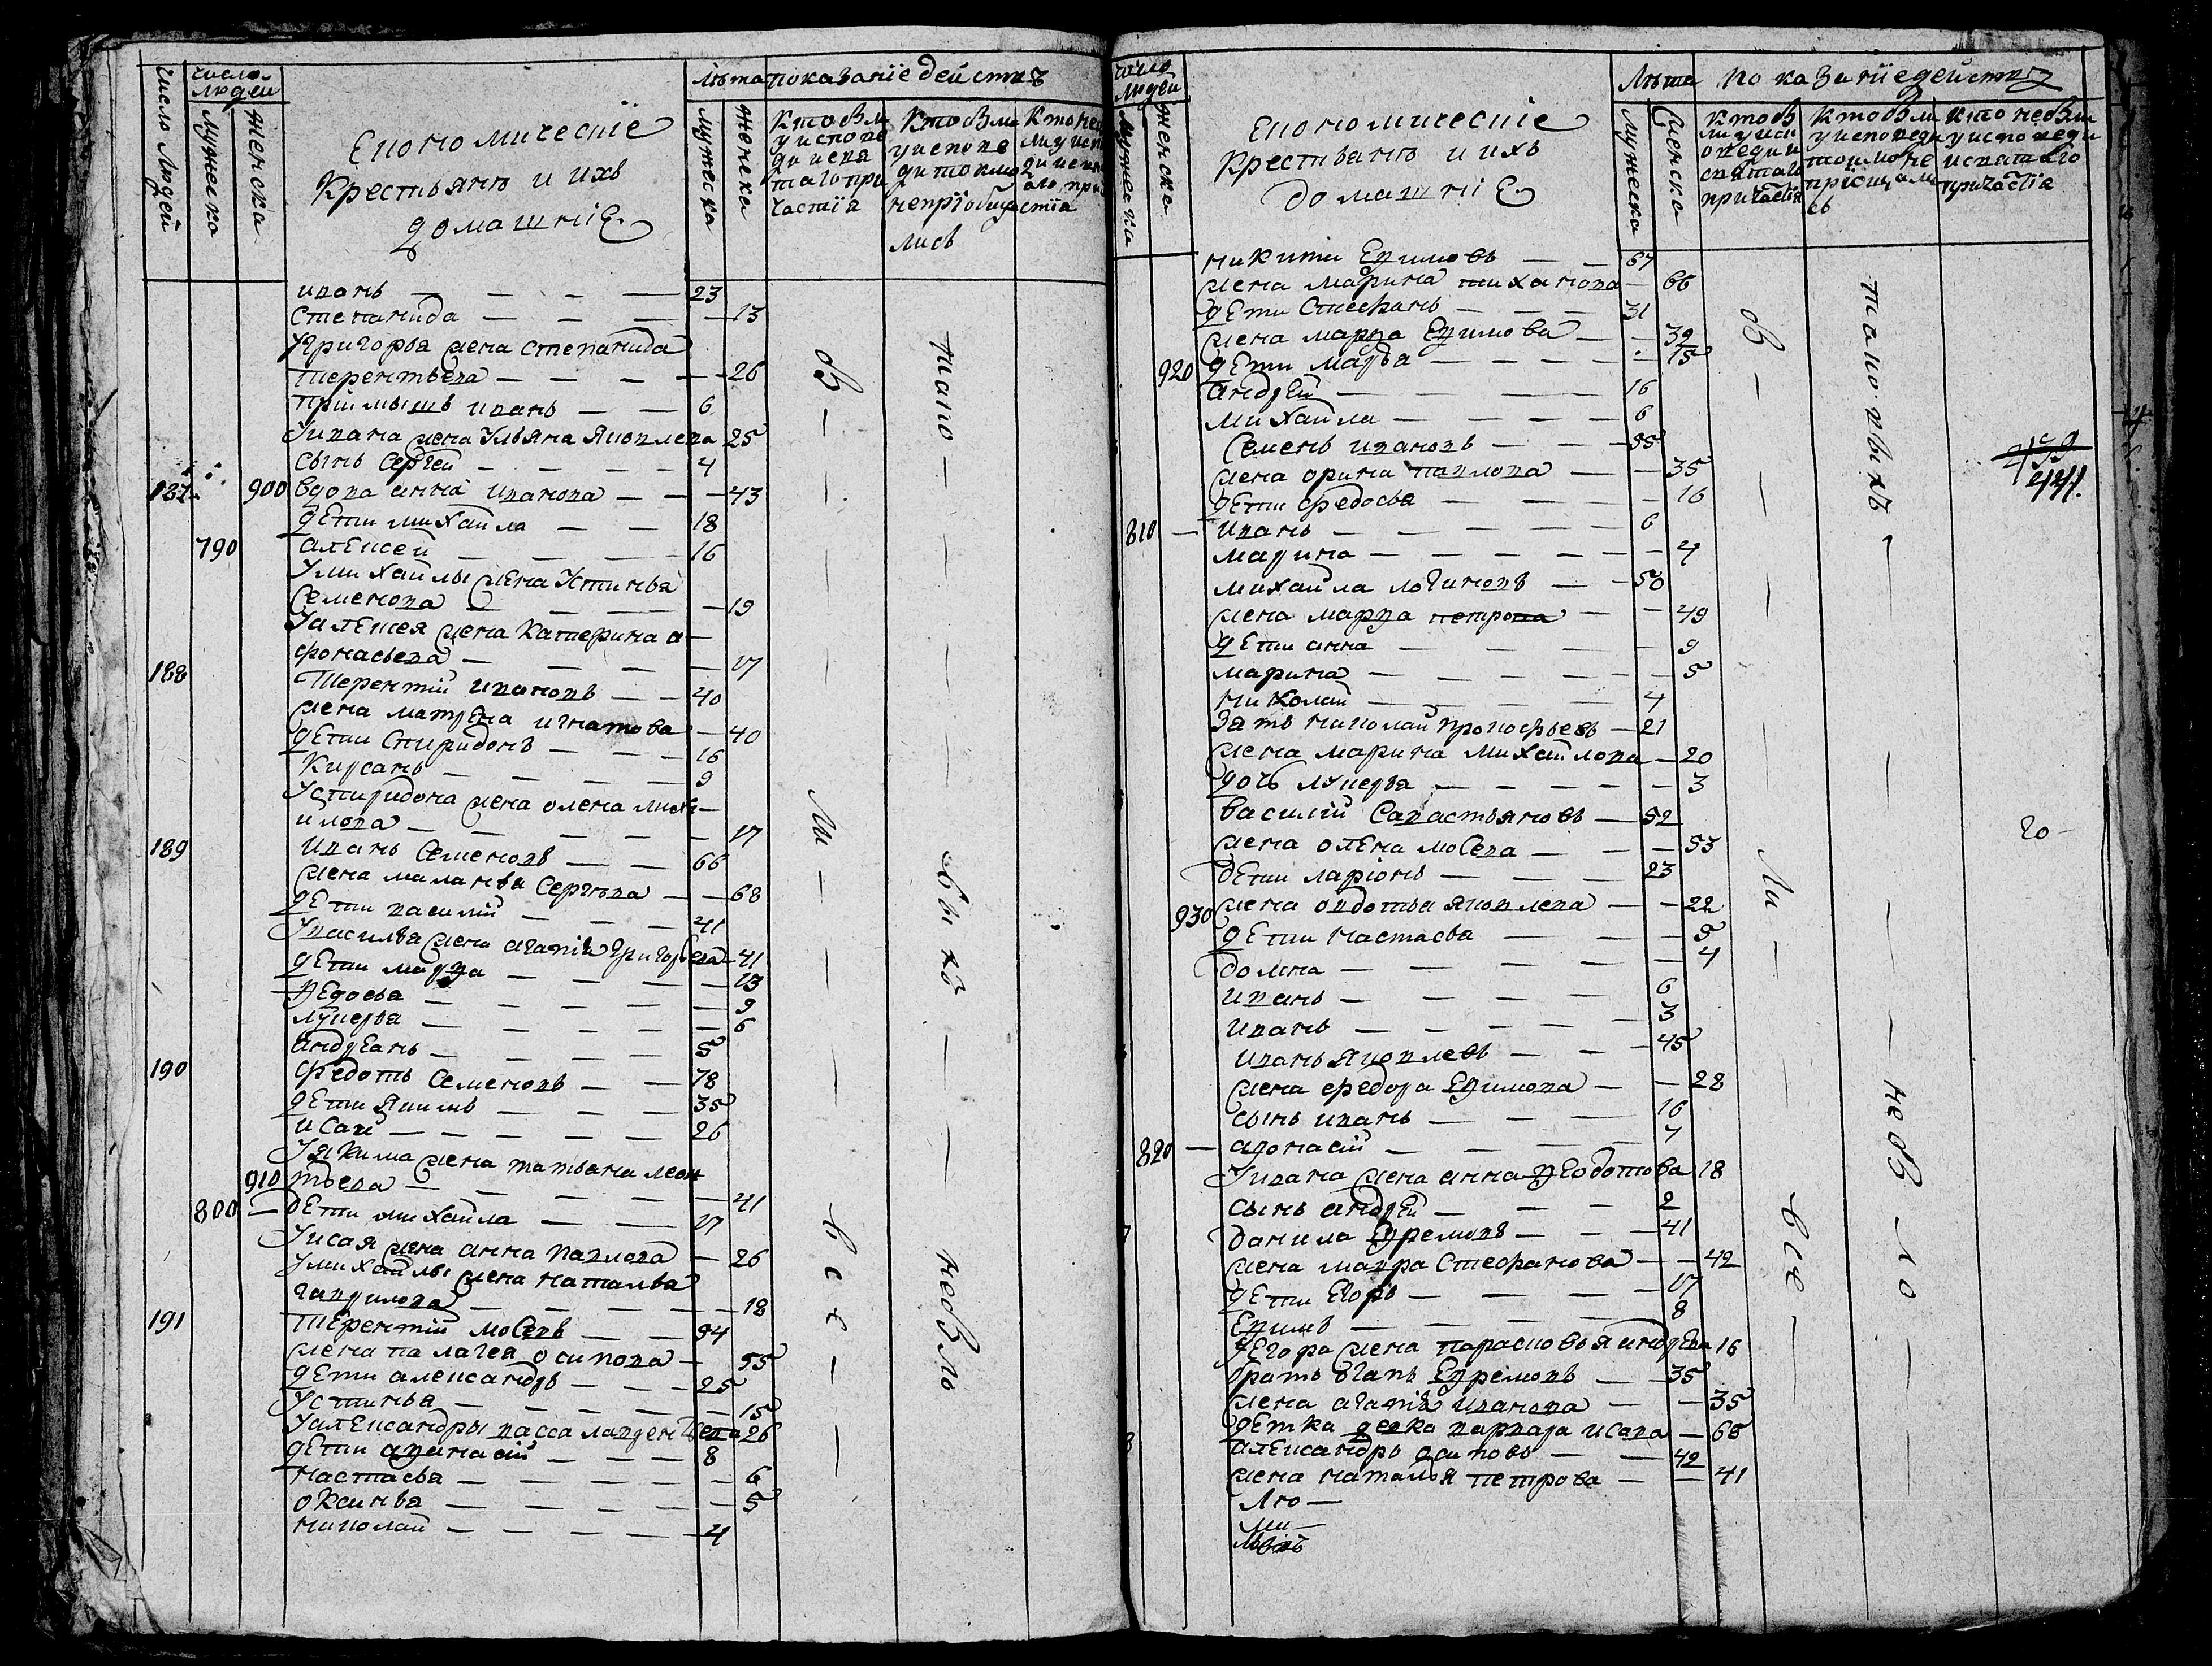 число людей
число людей
мужеска
женска
Економическïе
крестьянъ и ихъ
домашнïе
лѣта
показанïе действъ
мужеска
женска
кто были
у испове
ди и свя
таго при
частïя
кто были
у испове
ди токмо
не прïобща
лись
иванъ 23
степанида 13
у григорья жена степанида
терентьева 26
прïимышъ иванъ 6
у ивана жена ульяна яковлева 25
сынъ сергей 4
187 900 вдова анна иванова 43
дети михайла 18
790 алексей 16
у михайлы жена устинья
семенова 19
у алексея жена катерина а
фонасьева 17
188 терентïй ивановъ 40
жена матрена игнатова 40
дети спиридонъ 16
кирсанъ 9
у спиридона жена олена миха
илова 17
189 иванъ семеновъ 66
жена маланья сергѣева 68
дети василïй 41
у василья жена агапïя григорьева 41
дети марфа 13
федосья 9
лукерья 6
андреянъ 5
190 федотъ семеновъ 78
дети якимъ 35
исай 26
у якима жена татьяна леон
910 тьева 41
800 дети михайла 17
у исая жена анна павлова 26
у михайлы жена наталья
гаврилова 18
191 терентïй мосеевъ 54
жена палагея осипова 55
дети александръ 25
устинья 15
у александры васса лаврентьева 26
дети афонасïй 8
настасья 6
оксинья 5
николай 4
бы
ли
все
тако
выхъ
не было
число людей
мужеска
женска
Економическïе
крестьянъ и ихъ
домашнïе
лѣта
показанïе действъ
мужеска
женска
кто были
у испо
веди и
святаго
причастïя
кто были
у исповеди
токмо не
прïобщали
сь
кто не были
у исповеди
и святаго
причастïя
никита ефимовъ 67
жена марина тиханова 66
дети стефанъ 31
жена марфа ефимова 32
920 дети марья 15
андрей 16
михайла 6
семенъ ивановъ 35
жена орина павлова 35
дети федосья 16
810 иванъ 6
марина 4
михайла логиновъ 50
жена марфа петрова 49
дети анна 9
марина 5
николай 4
зять николай прокофьевъ 21
жена марина михайлова 20
дочь лукерья 3
василïй савастьяновъ 52
жена олена мосеева 53
дети ларïонъ 23
930 жена овдотья яковлева 22
дети настасья 5
домна 4
иванъ 6
иванъ 3
иванъ яковлевъ 45
жена федора ефимова 28
сынъ иванъ 16
820 афонасïй 7
у ивана жена анна федотова 18
сынъ андрей 2
данила ефремовъ 41
жена мавра стефанова 42
дети егоръ 17
ефимъ 8
у егора жена парасковья андреева 16
братъ ефремовъ 35
жена агапïя иванова 35
тетка девка варвара исаева 68
александръ осиповъ 42
жена наталья петрова 41
бы
ли
все
таковыхъ
не было
441.